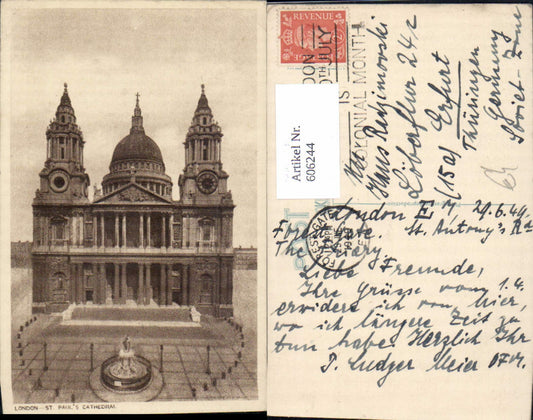 LONDON ST. PAUL'S CATHEDRAL
REVENUE
LONDON
JULY
IS
COLONIAL MONTH
Artikel Nr.
606244
Hans
Löberflur 24c
(15a) Erfurt
Thüringen
Germany
Soviet-Zone
London E 7, 29.6.49
Forest Gate. St. Antony's Rd
The Friary.
Liebe Freunde,
Ihre Grüsse vom 1.4.
erwidere ich von hier,
wo ich längere Zeit zu
tun habe. Herzlich Ihr
P. Ludger Meier OFM.